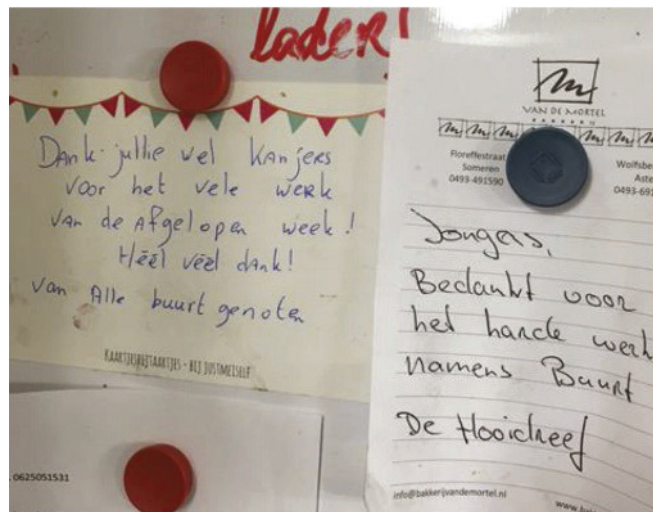 lader!
Dank jullie wel Kanjers
voor het vele werk
van de Afgelopen week!
Héél véél dank!
van Alle buurtgenoten
KAARTJESBIJTAARTJES - BIJ JUSTMEISELF
0625051531
VAN DE MORTEL
Floreffestraat
Someren
0493-491590
Wolfsbe
Aste
0493-691
Jongens,
Bedankt voor
het harde werk
namens Buurt
De Hooidreef
info@bakkerijvandemortel.nl